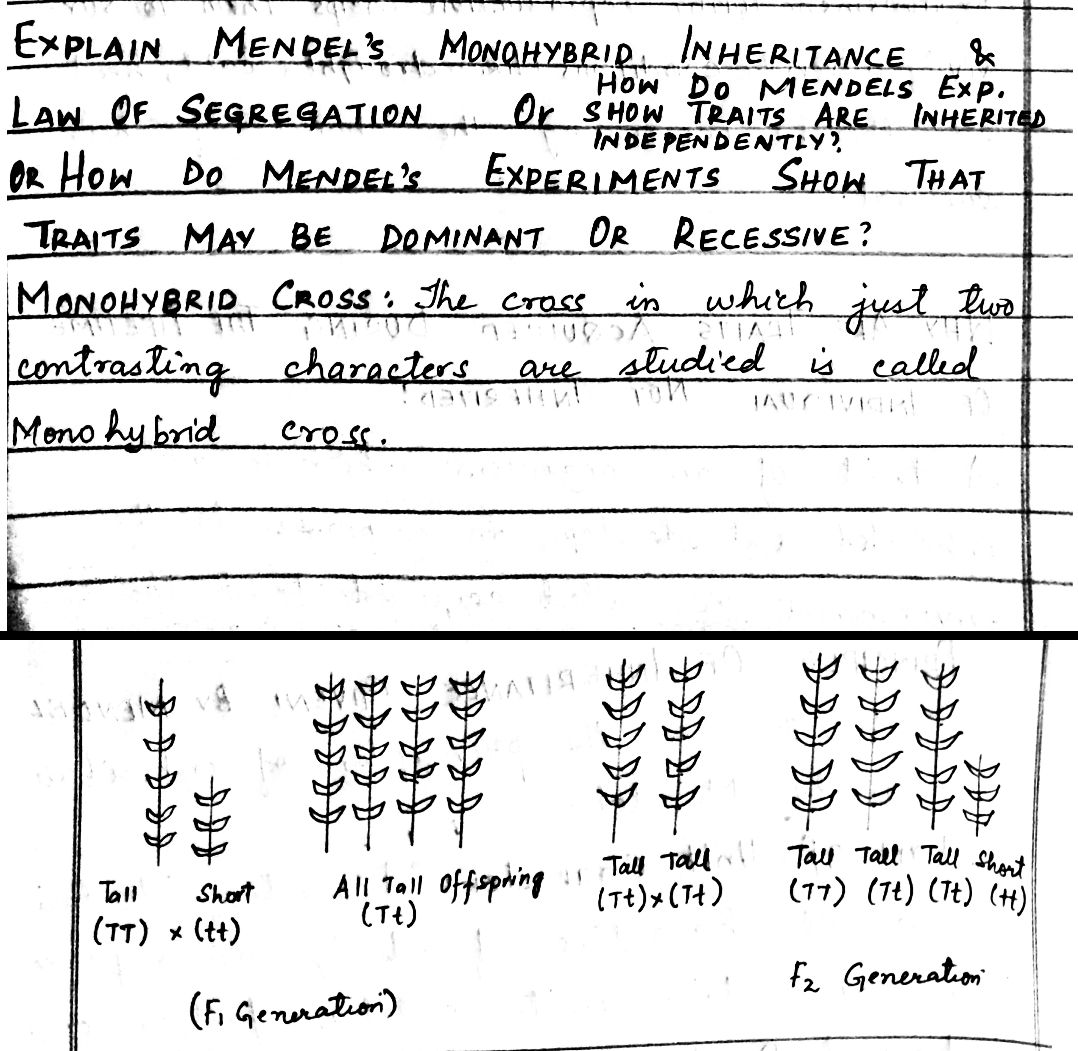 EXPLAIN MENDEL'S MONOHYBRID INHERITANCE &
LAW OF SEGREGATION Or HOW DO MENDELS EXP.
SHOW TRAITS ARE INHERITED
INDEPENDENTLY?
OR HOW DO MENDEL'S EXPERIMENTS SHOW THAT
TRAITS MAY BE DOMINANT OR RECESSIVE?
MONOHYBRID CROSS: The cross in which just two
contrasting characters are studied is called
Monohybrid cross.
Tall Short
(TT) x (tt)
All Tall Offspring
(Tt)
(F1 Generation)
Tall Tall
(Tt) x (Tt)
Tall Tall Tall Short
(TT) (Tt) (Tt) (tt)
F2 Generation